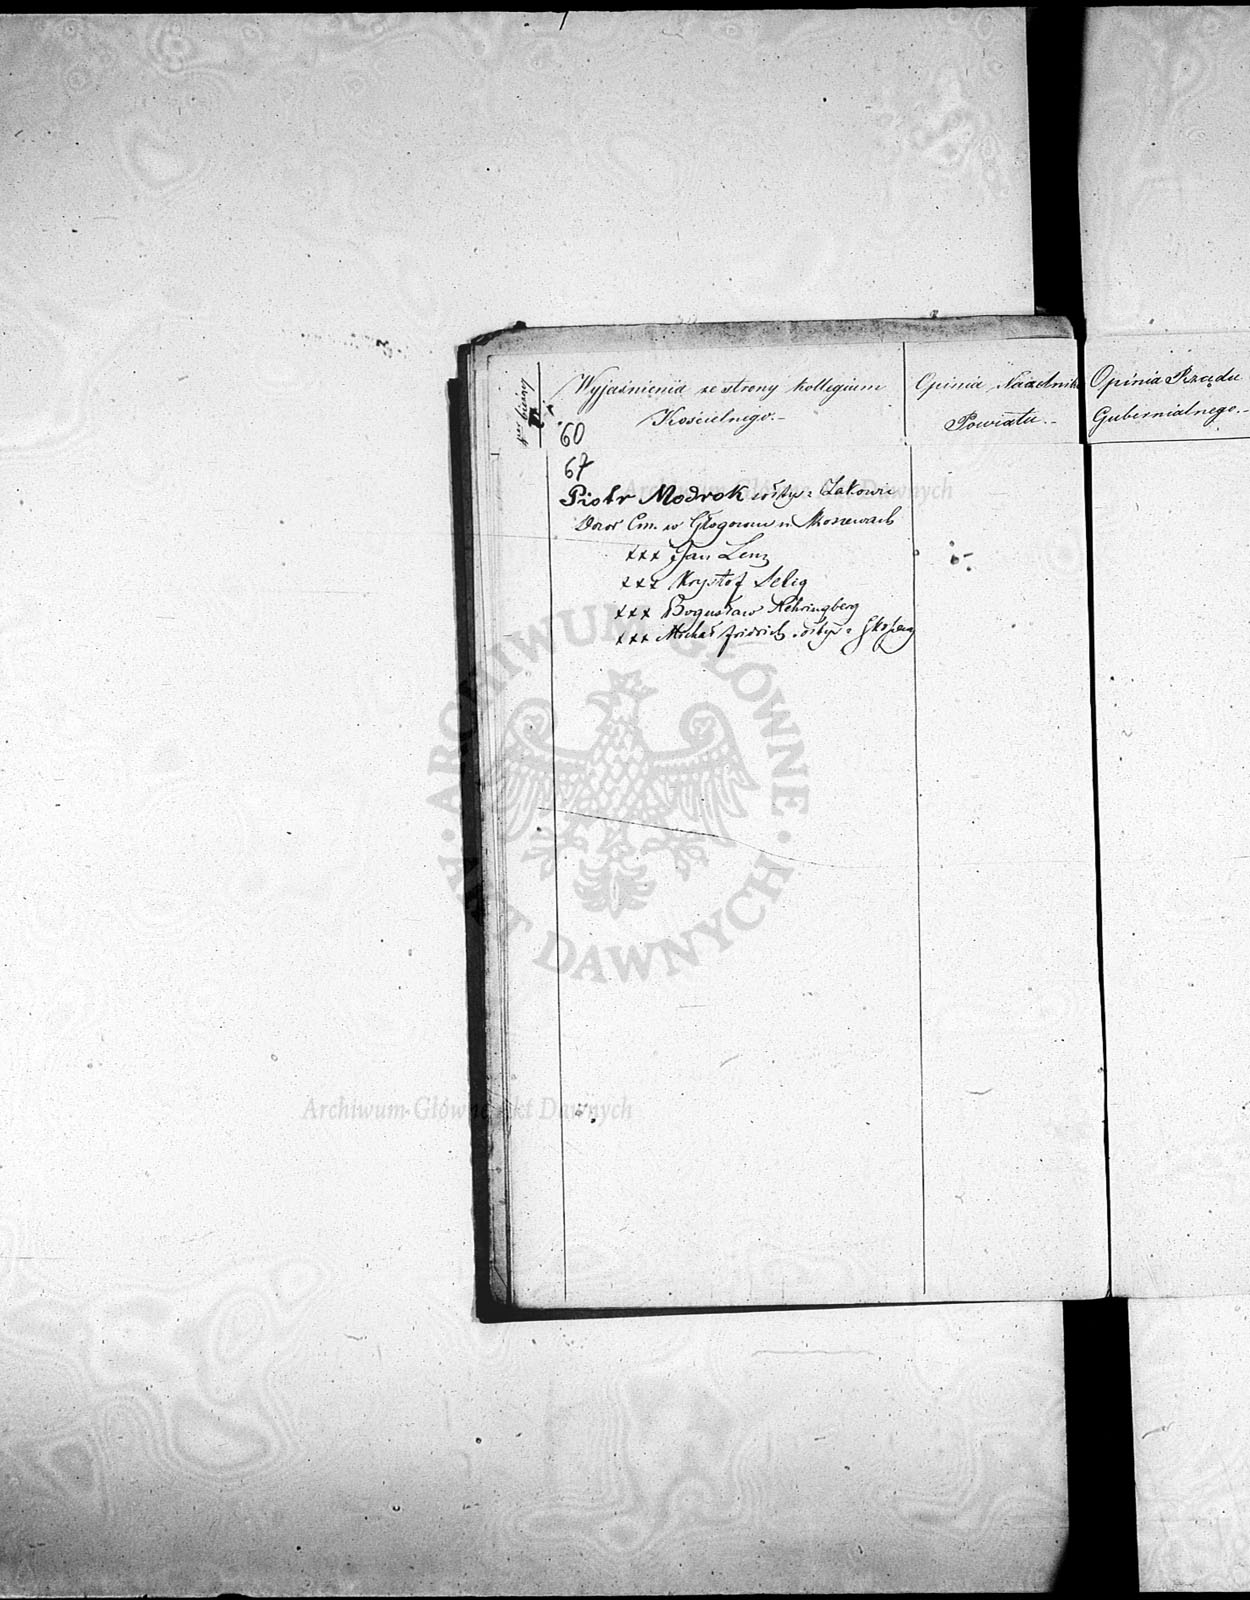 Nr bieżący
Wyjaśnienia ze strony kollegium
Kościelnego.-
Opinia Naczelnika
Powiatu.-
Opinia Rządu
Gubernialnego.-
60
67
Piotr Modrok
w
xxx Jan Lenz
xxx Krysztof Selig
xxx Bogusław Nehringberg
xxx Michał Fridrich
Archiwum Główne Akt Dawnych
ARCHIWUM GŁÓWNE · AKT DAWNYCH ·
Archiwum Główne Akt Dawnych